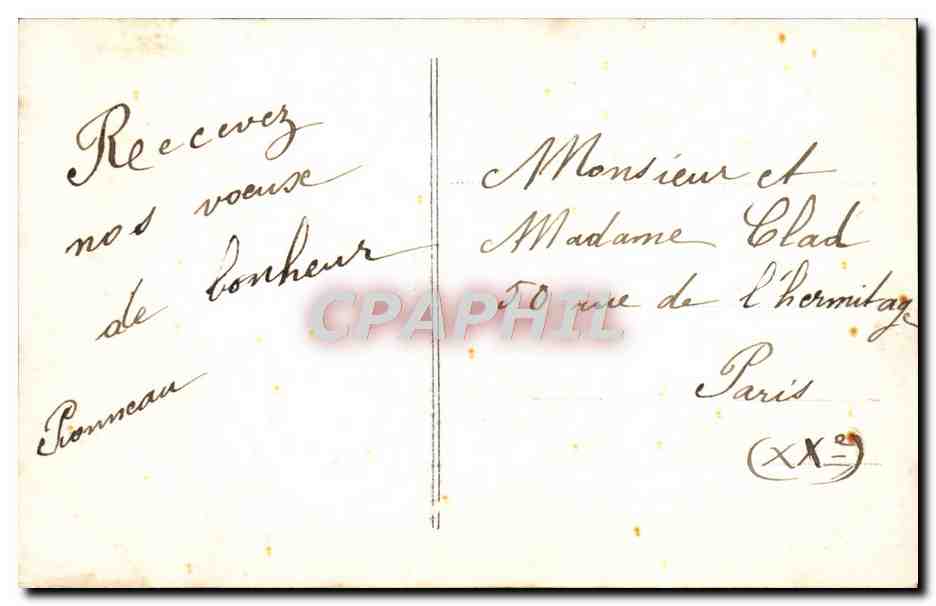 Recevez
nos voeux
de bonheur
Pronneau
Monsieur et
Madame Clad
50 rue de l'hermitage
Paris
(XXe)
CPAPHIL